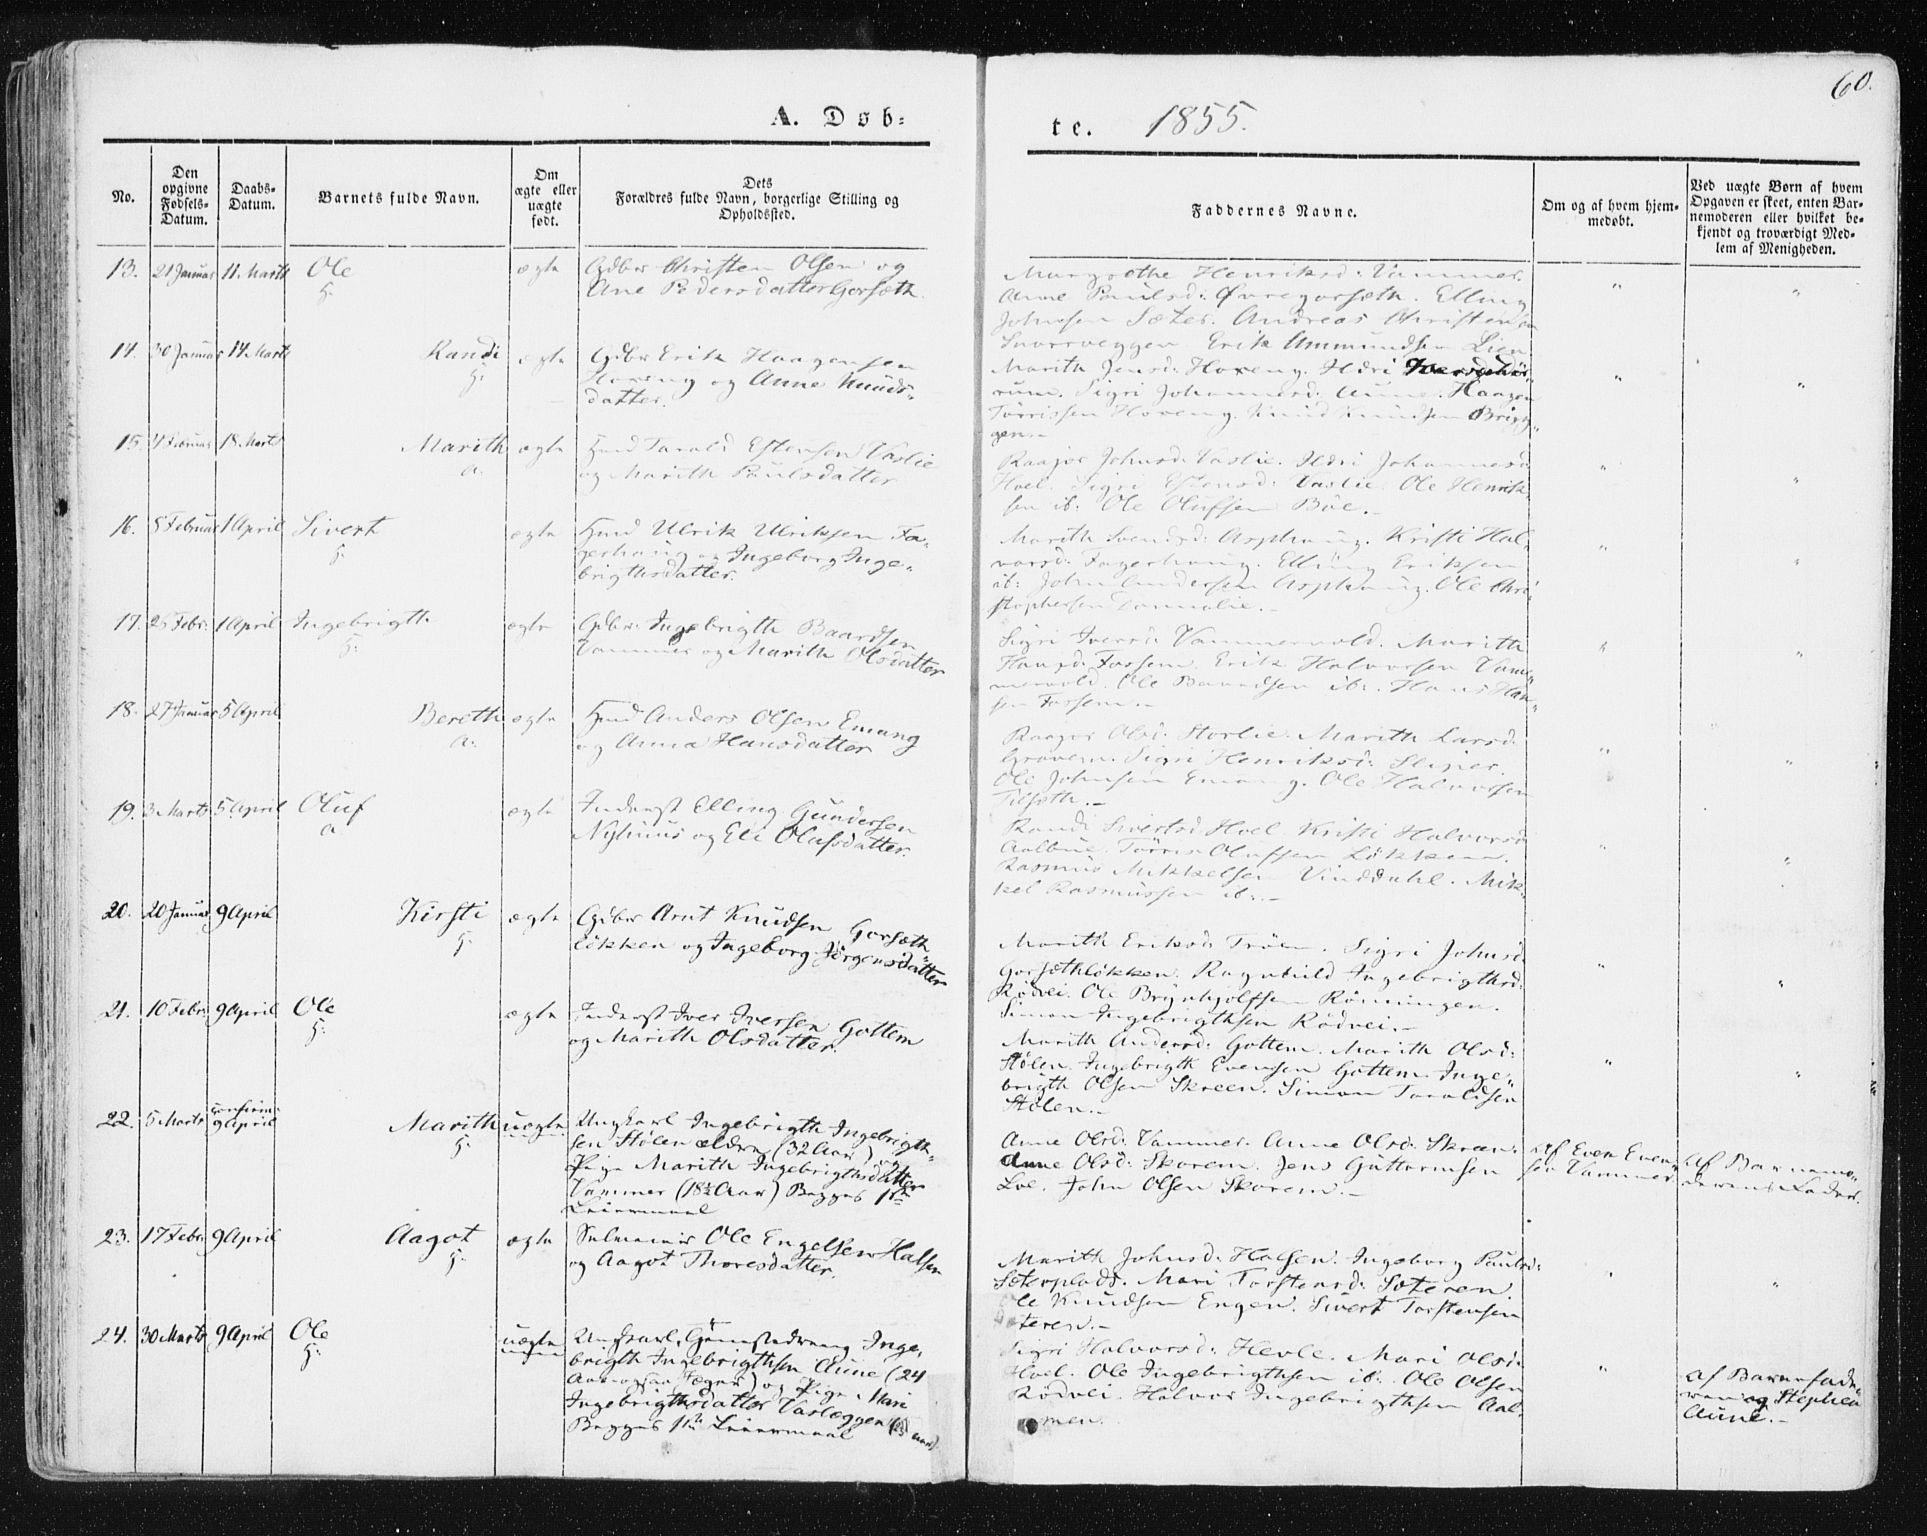 60.
A. Døb-
te. 1855.
No.
Den opgivne Fødsels-Datum.
Daabs-Datum.
Barnets fulde Navn.
Om ægte eller uægte født.
Dets Forældres fulde Navn, borgerlige Stilling og Opholdssted.
Faddernes Navne.
Om og af hvem hjemmedøbt.
Ved uægte Børn af hvem Opgaven er skeet, enten Barnemoderen eller hvilket bekjendt og troværdigt Medlem af Menigheden.
13. 21 Januar 11. Marts Ole ægte Gdbr Christen Olsen og
h. Ane Pedersdatter Gorsæth.
Margrethe Henriksd: Vammer.
Anne Paulsd: Øvregorsæth. Elling
Johnsen Sæter. Andreas Christensen
Snorroveggen. Erik Ammundsen Lien
14. 30 Januar 14 Marts Randi ægte Gdbr Erik Haagensen
h. Horeng og Anne Knuds-
datter.
Marith Jensd: Horeng. Ildri
Sigri Johannesd: Aune. Haagen
Tørrissen Horeng. Knud Knudsen Brigg-
gen.-
15. 4 Februar 18 Marts Marith ægte Huusmd Tarald Estensen Vaslie
a. og Marith Paulsdatter
Raagor Johnsd: Vaslie. Ildri Johannesd:
Hoel. Sigri Estensd: Vaslie. Ole Henrik-
sen ib: Ole Olufsen Böe.-
16. 8 Februar 1 April Sivert ægte Hmd Ulrik Ulriksen Fa-
h. gerhaug og Ingeborg Inge-
brigthsdatter.
Marith Svendsd: Asphaug. Kristi Hal-
vorsd: Fagerhaug. Elling Eriksen
ib: John Andersen Asphaug. Ole Chri-
stophersen Donnalie.-
17. 25 Febr: 1 April Ingebrigth ægte Gdbr: Ingebrigth Baardsen
h. Vammer og Marith Olsdatter
Sigri Iversd: Vammervold. Marith
Haugd: Fossem. Erik Halvorsen Vam-
mervold. Ole Baardsen ib: Hans Han-
sen Fossem.-
18. 27 Januar 5 April Bereth ægte Hmd Anders Olsen Emang
a. og Anna Hansdatter
Raagor Olsd: Storlie. Marith Larsd:
Graven. Sigri Henriksd: Sliper.
Ole Johnsen Emang. Ole Halvorsen
Tilseth.-
19. 3 Marts 5 April Oluf ægte Inderst Elling Gundersen
a Nyhuus og Eli Olufsdatter.
Randi Sivertsd: Hoel. Kristi Halvorsd:
Aalbue. Tørris Olufsen Løkken.
Rasmus Mikkelsen Vinddahl. Mik-
kel Rasmussen ib:.-
20. 20 Januar 9 April Kirsti ægte Gdbr Arnt Knudsen Gorsæth
h. løkken og Ingeborg Jörgensdatter
Marith Eriksd: Tröen. Sigri Johnsd:
Gorsæthløkken. Ragnhild Ingebrigthsd:
Rödvei. Ole Brynhjolfsen Rönningen.
Simon Ingebrigthsen Rödvei.-
21. 10 Febr: 9 April Ole ægte Inderst Iver Iversen Gottem
h. og Marith Olsdatter.
Marith Andersd: Gottem. Marith Olsd:
Stølen. Ingebrigth Evensen Gottem. Inge-
brigth Olsen Skreen. Simon Taraldsen
Stølen.-
22. 5 Marts confirm: 9 April Marith uægte Ungkarl Ingebrigth Ingebrigth-
h. sen Stølen ældre (32 Aar) og
Pige Marith Ingebrigthsdatter
Vammer (18½ Aar) Begges 1ste
Leiermaal
Anne Olsd: Vammer. Anne Olsd: Skreen.
Anne Olsd: Skorem. Jens Guttormsen
Loe. John Olsen Skorem.-
af Even Even-
sen Vammer
af Barnemo-
derens Fader.
23. 17 Febr: 9 April Aagot ægte Selveier Ole Engelsen Halsen
h. og Aagot Thoresdatter.
Marith Johnsd: Halsen. Ingeborg Paulsd:
Sæterplads. Mari Torstensd: Sæteren.
Ole Knudsen Engen. Sivert Torstensen
Sæteren.-
24. 30 Marts 9 April Ole uægte Ungkarl, Inge-
h. brigth Ingebrigthsen Aune (24
Aar) og Pige Mari
Ingebrigthsdatter Vaslæggen (25 aar)
Begges 1ste Leiermaal
Sigri Halvorsd: Hevle. Mari Olsd:
Hoel. Ole Ingebrigthsen ib: Ole Olsen
Rödvei. Halvor Ingebrigthsen Aal-
men.
af Barnefade-
ren og Stephen
Aune.-